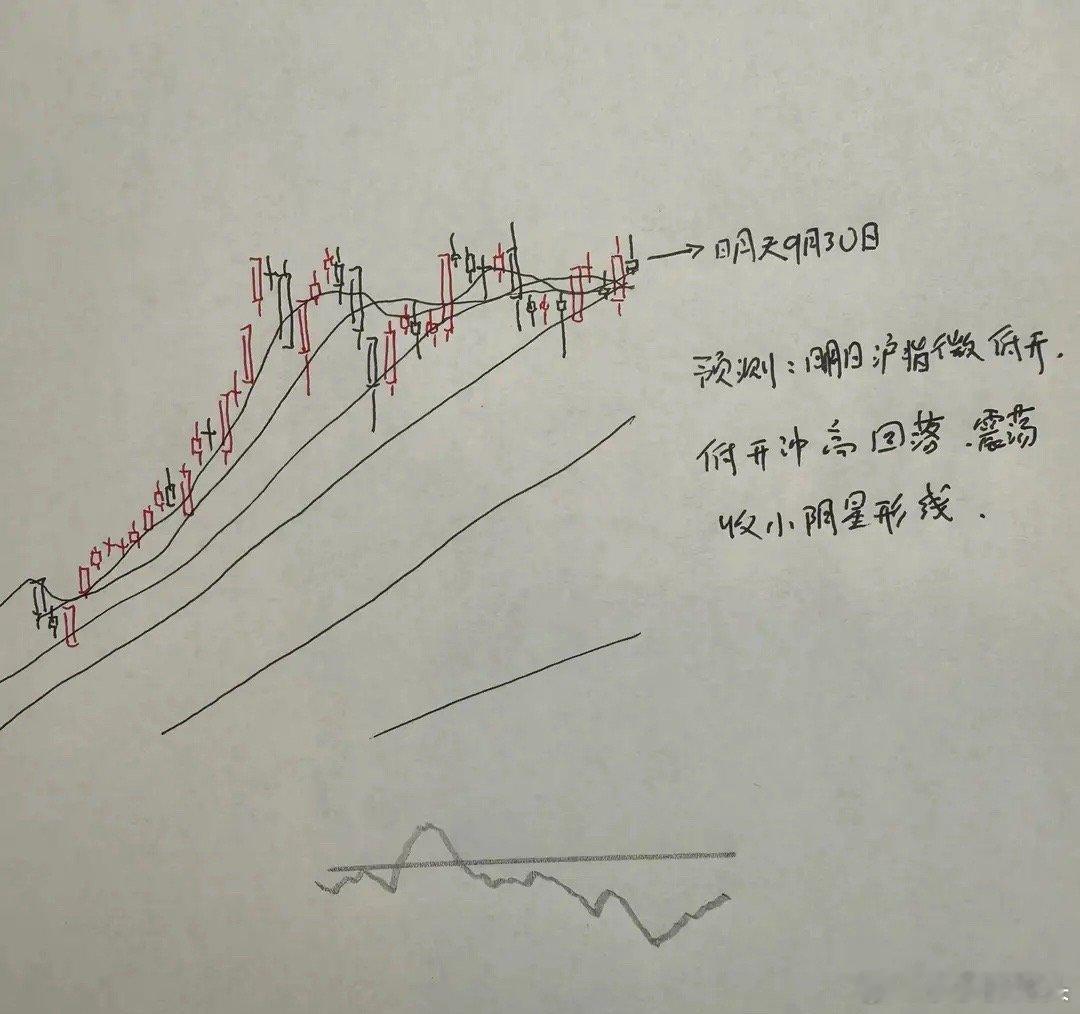 明天9月30日
预测：明日沪指微低开.
低开冲高回落.震荡
收小阴星形线.